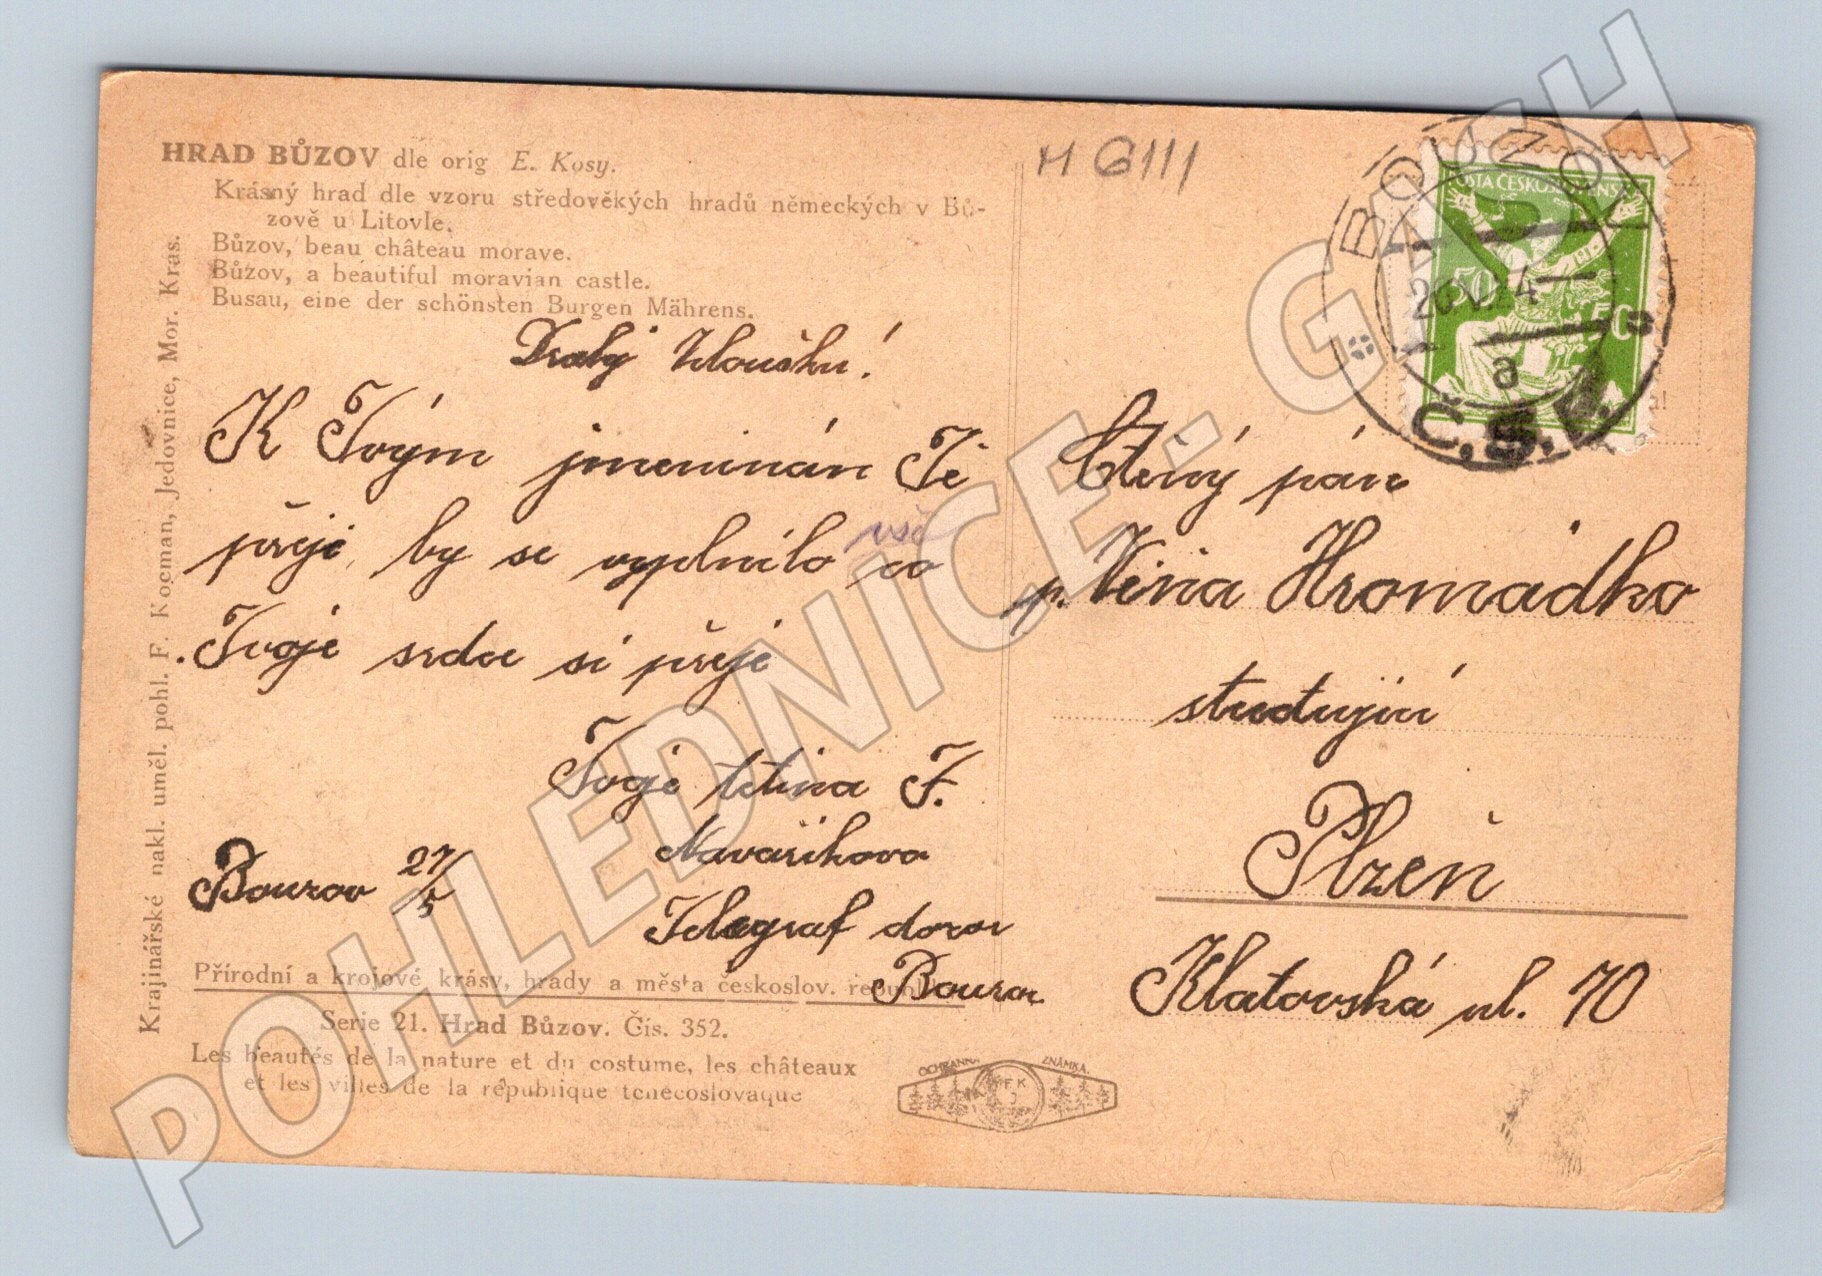 HRAD BŮZOV dle orig E. Kosy.
Krásný hrad dle vzoru středověkých hradů německých v Bů-
zově u Litovle.
Bůzov, beau château morave.
Bůzov, a beautiful moravian castle.
Busau, eine der schönsten Burgen Mährens.
Krajinářské nakl. uměl. pohl. F. Kocman, Jedovnice, Mor. Kras.
Drahý
K Tvým jmeninám Ti
přeji, by se vyplnilo vše co
Tvoje srdce si přeje
Tvoje tetina F.
Navařikova
Bouzov 27/5
Telegraf dozor
Bouzov
Přírodní a krojové krásy, hrady a města českoslov. republiky
Serie 21. Hrad Bůzov. Čís. 352.
Les beautés de la nature et du costume, les châteaux
et les villes de la république tchécoslovaque
OCHRANNÁ ZNÁMKA
F K
J
H 6111
BOUZOV
a
Č.S.P.
POŠTA ČESKOSLOVENSKÁ
50
50
Ctěný pán
p. Hromádko
studující
Plzeň
Klatovská ul. 70
POHLEDNICE-GASH